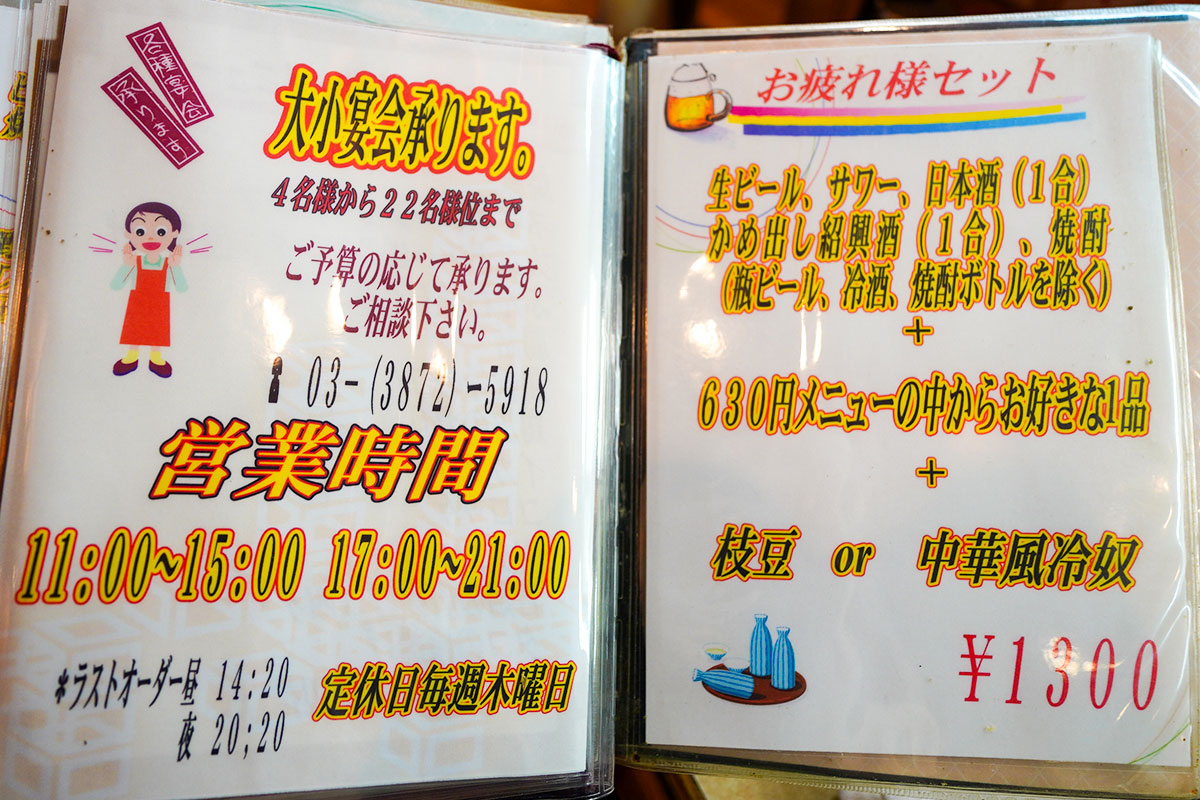 各種宴会
承ります
大小宴会承ります。
４名様から２２名様位まで
ご予算の応じて承ります。
ご相談下さい。
03-(3872)-5918
営業時間
11:00~15:00 17:00~21:00
*ラストオーダー昼 14:20
夜 20;20
定休日毎週木曜日
お疲れ様セット
生ビール、サワー、日本酒（１合）
かめ出し紹興酒（１合）、焼酎
（瓶ビール、冷酒、焼酎ボトルを除く）
+
６３０円メニューの中からお好きな1品
+
枝豆 or 中華風冷奴
￥1300